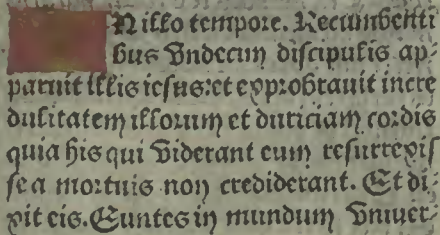 N illo tempore. Recumbenti
bus vndecim discipulis ap-
paruit illis iesus: et exprobrauit incre
dulitatem illorum et duriciam cordis
quia his qui viderant eum resurrexis
se a mortuis non crediderant. Et di-
xit eis. Euntes in mundum vniuer-